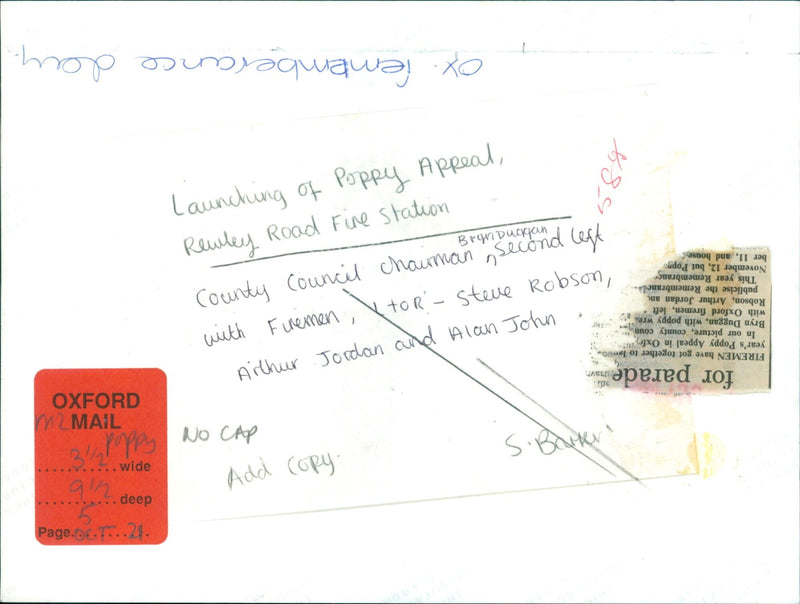 ox. remembrance day.
Launching of Poppy Appeal,
Rewley Road Fire Station
County Council Chairman Bryn Duggan second left
with Firemen, L TO R - Steve Robson,
Arthur Jordan and Alan John
NO CAP
Add Copy.
OXFORD
MAIL
poppy
3½ wide
9½ deep
5
Page OCT 21
for parade
FIREMEN have got together to
year's Poppy Appeal in
In our picture, county
Bryn Duggan, with poppy
with Oxford firemen, left
Robson, Arthur Jordan
publicise the Remembrance
This year Remembrance
November 12, but Poppy
ber 11, and house